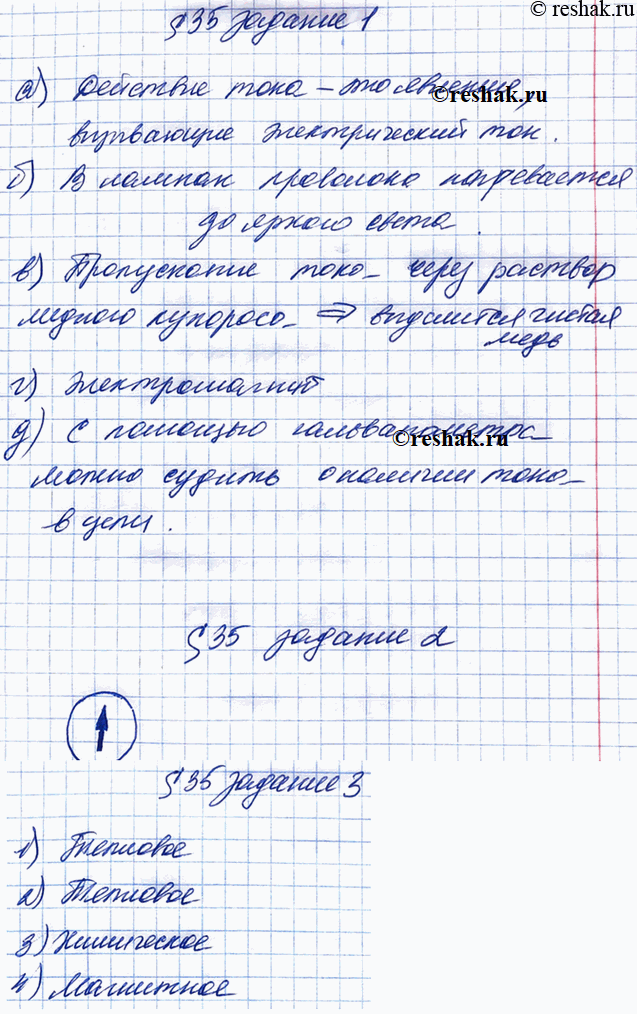 © reshak.ru
§ 35 задание 1
а) Действие тока – это явление,
©reshak.ru
вызывающие электрический ток.
б) В лампах проволока нагревается
до яркого света.
в) Пропускание тока через раствор
медного купороса ⇒ выделится чистая
медь
г) Электромагнит
д) С помощью гальванометра
©reshak.ru
можно судить о наличии тока
в цепи.
§ 35 задание 2
§ 35 задание 3
1) Тепловое
2) Тепловое
3) Химическое
4) Магнитное